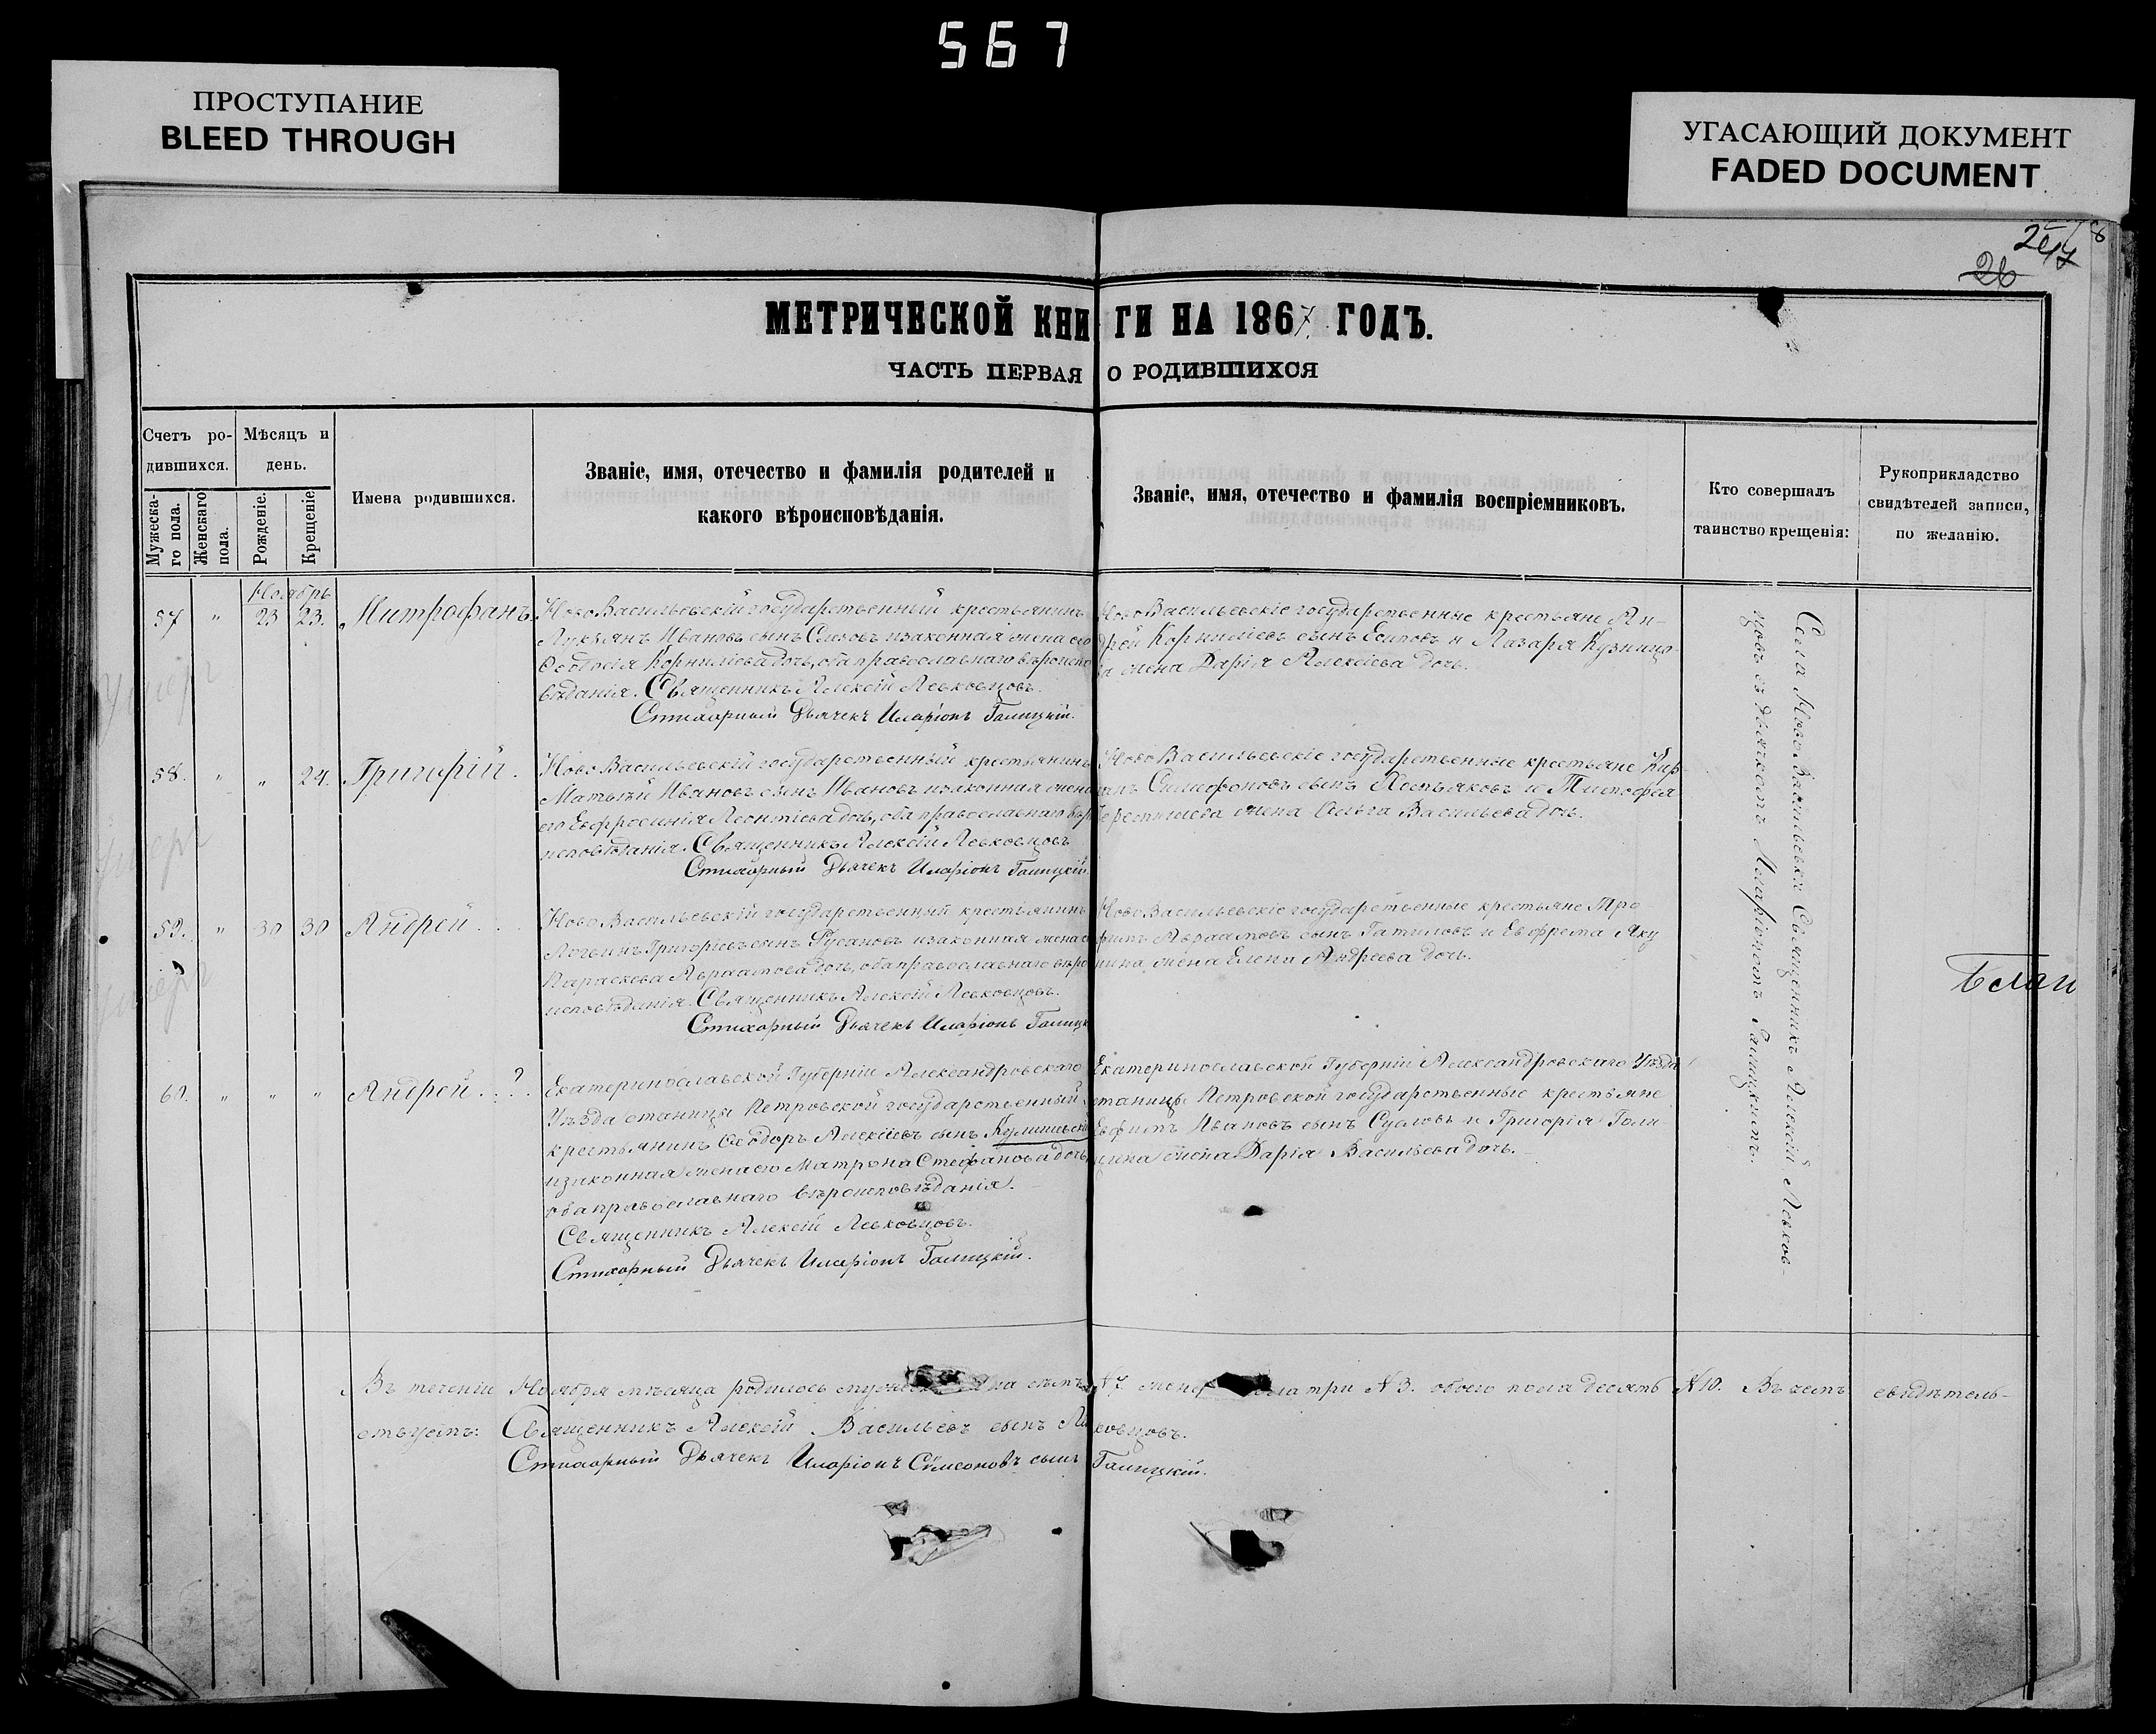 567
ПРОСТУПАНИЕ
BLEED THROUGH
УГАСАЮЩИЙ ДОКУМЕНТ
FADED DOCUMENT
26
МЕТРИЧЕСКОЙ КНИГИ НА 1867 ГОДЪ.
ЧАСТЬ ПЕРВАЯ О РОДИВШИХСЯ
Счетъ ро-
дившихся.
Мѣсяцъ и
день.
Мужеска-
го пола.
Женскаго
пола.
Рожденіе.
Крещеніе
Имена родившихся.
Званіе, имя, отечество и фамилія родителей и
какого вѣроисповѣданія.
Званіе, имя, отечество и фамилія воспріемниковъ.
Кто совершалъ
таинство крещенія:
Рукоприкладство
свидѣтелей записи,
по желанію.
Ноябрь
57 " 23 23. Митрофанъ
НовоВасильевскій государственный крестьянинъ
Лукьянъ Ивановъ сынъ изаконная жена его
Ѳеодосія Корниліева дочь, оба православнаго вѣроиспо
вѣданія. Священникъ Алексій Левковцовъ.
Стихарный Дьячекъ Иларіонъ Галицкій.
НовоВасильевскіе государственные крестьяне Ан-
дрей Корниліевъ сынъ Есиповъ и Лазаря Кузнецо-
ва жена Дарія Алексіева дочь.
58. " " 24. Григорій.
НовоВасильевскій государственный крестьянинъ
Матвѣй Ивановъ сынъ Ивановъ изаконная жена
его Евфросинія Леонтіева дочь, оба православнаго вѣро
исповѣданія. Священникъ Алексій Левковцовъ
Стихарный Дьячекъ Иларіонъ Галицкій.
НовоВасильевскіе государственные крестьяне
сынъ и Тимофея
жена Ольга Васильева дочь.
59. " 30 30 Андрей...
НовоВасильевскій государственный крестьянинъ
Логвинъ Григоріевъ сынъ Русановъ изаконная жена
Параскева Авраамова дочь, оба православнаго вѣро
исповѣданія. Священникъ Алексій Левковцовъ.
Стихарный Дьячекъ Иларіонъ Галицк
НовоВасильевскіе государственные крестьяне Тро-
фимъ Авраамовъ сынъ и Евфрема Яку
нина жена Елена Андреева дочь.
60. " " " Андрей...?
Екатеринославской Губерніи Александровскаго
Уѣзда станицы Петровской государственный
крестьянинъ Ѳеодоръ Алексіевъ сынъ
изаконная жена его Матрона Стефанова дочь,
оба православнаго вѣроисповѣданія.
Священникъ Алексій Левковцовъ.
Стихарный Дьячекъ Иларіонъ Галицкій.
Екатеринославской Губерніи Александровскаго Уѣзда
станицы Петровской государственные крестьяне
Евфимъ Ивановъ сынъ Сусловъ и Григорія Голи-
цина жена Дарія Васильева дочь.
Села НовоВасильевки Священникъ Алексій Левков-
цовъ съ дьячкомъ Иларіономъ Галицкимъ.
умеръ
умеръ
умеръ
Въ теченіи Ноября мѣсяца родилось седмь №7. три №3. обоего пола десять №10. Въ чемъ свидѣтель-
ствуетъ: Священникъ Алексій Васильевъ сынъ Левковцовъ.
Стихарный Дьячекъ Иларіонъ Сѵмеоновъ сынъ Галицкій.